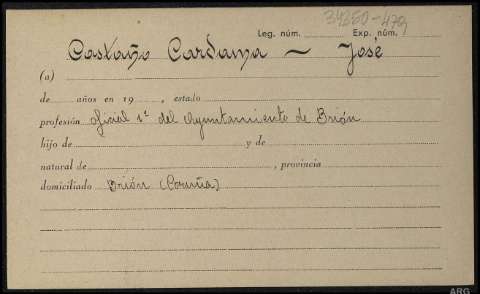 34250-479
Leg. núm. Exp. núm.
Castaño Cardama - José
(a)
de años en 19 , estado
profesión oficial 1º del Ayuntamiento de Brión
hijo de y de
natural de , provincia
domiciliado Brión (Coruña)
ARG